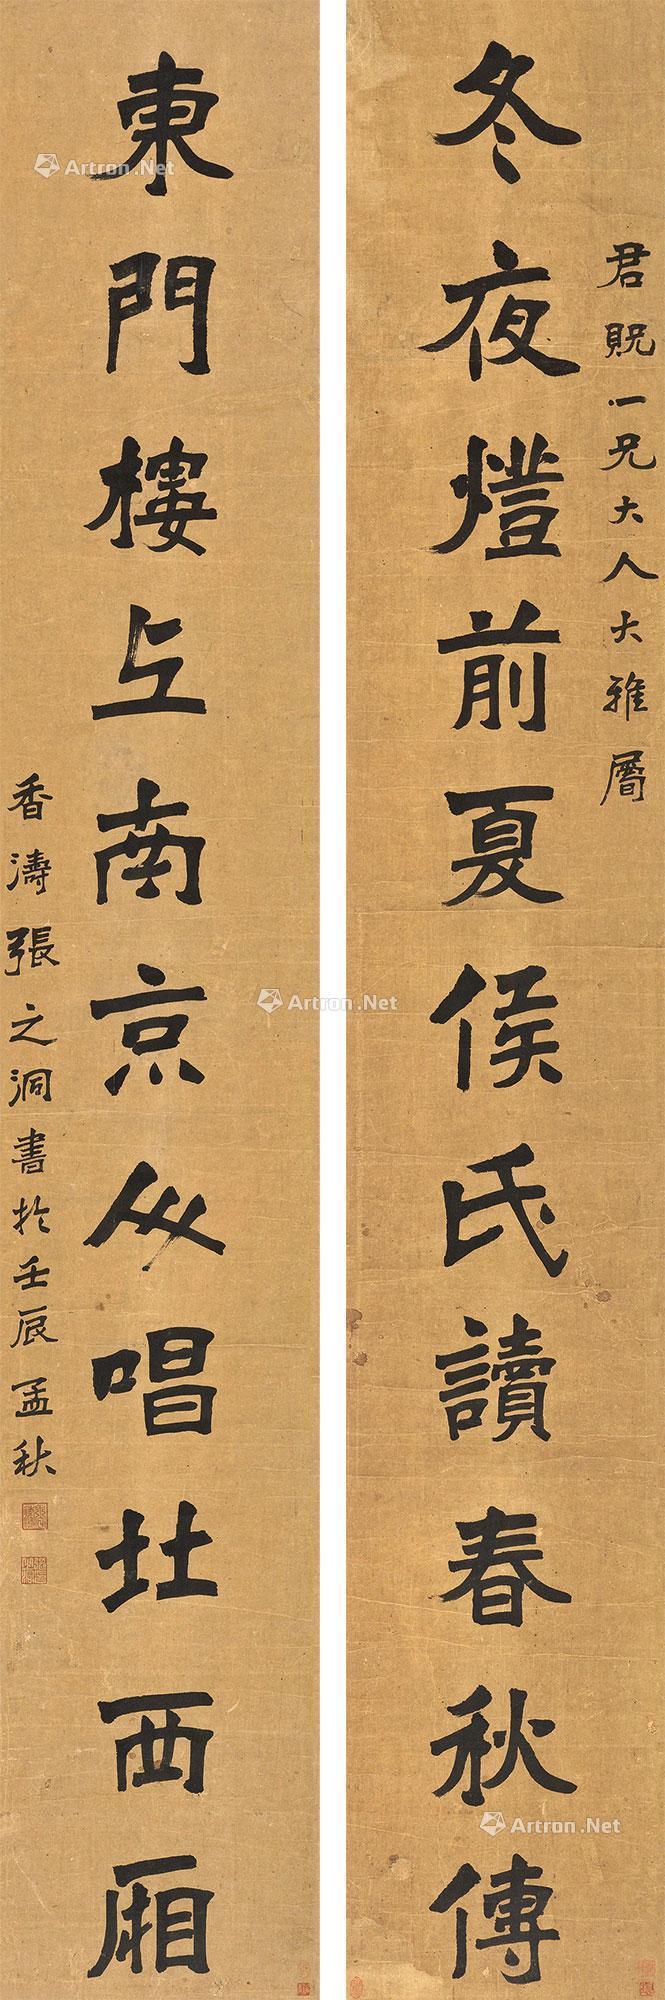 君貺一兄大人大雅屬
冬夜燈前夏侯氏讀春秋傳
東門樓上南京人唱北西廂
香濤張之洞書於壬辰孟秋
Artron.Net
Artron.Net
Artron.Net